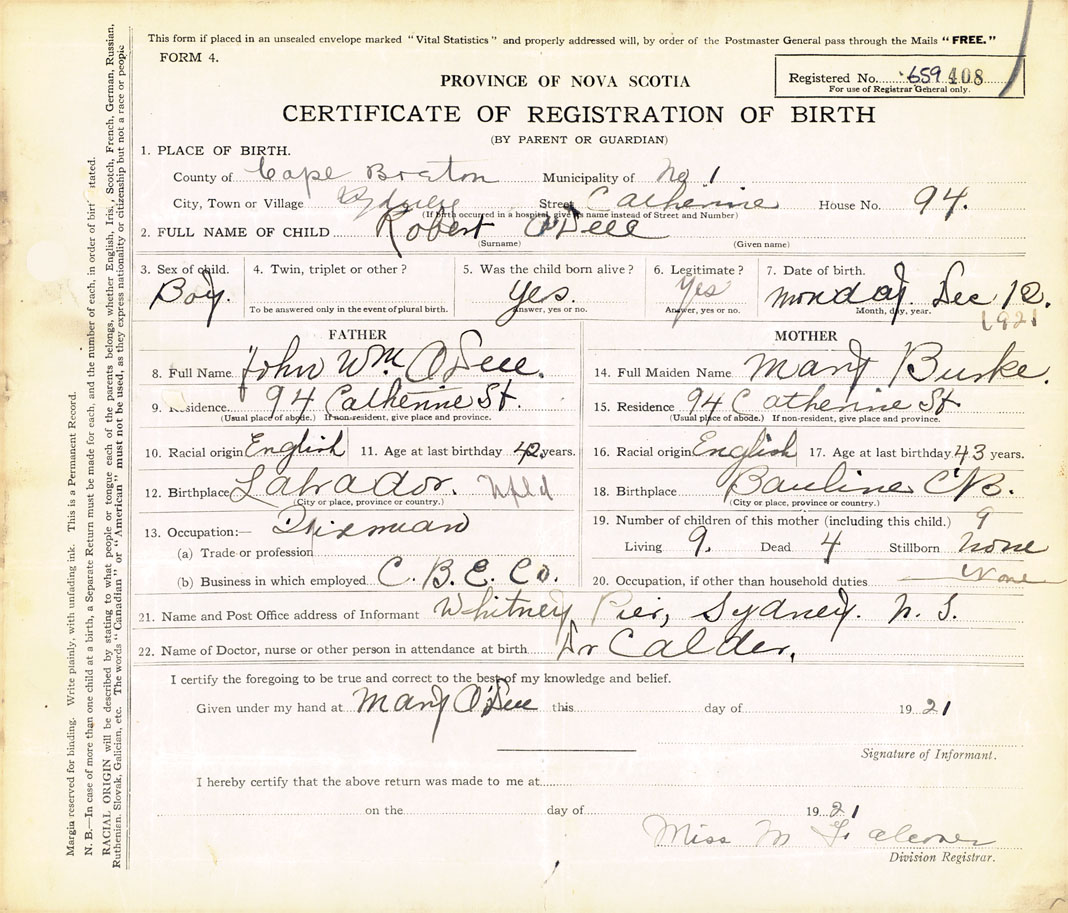 This form if placed in an unsealed envelope marked "Vital Statistics" and properly addressed will, by order of the Postmaster General pass through the Mails "FREE."
FORM 4.
PROVINCE OF NOVA SCOTIA
Registered No. 659 408
For use of Registrar General only.
CERTIFICATE OF REGISTRATION OF BIRTH
(BY PARENT OR GUARDIAN)
1. PLACE OF BIRTH.
County of Cape Breton Municipality of No 1
City, Town or Village Sydney Street Catherine House No. 94.
(If birth occurred in a hospital, give its name instead of Street and Number)
2. FULL NAME OF CHILD Robert O'Dell
(Surname) (Given name)
3. Sex of child. 4. Twin, triplet or other? 5. Was the child born alive? 6. Legitimate? 7. Date of birth.
Boy. Yes. Yes Monday Dec 12.
To be answered only in the event of plural birth. Answer, yes or no. Answer, yes or no. Month, day, year.
1921
FATHER
8. Full Name John Wm O'Dell.
9. Residence. 94 Catherine St.
(Usual place of abode.) If non-resident, give place and province.
10. Racial origin English 11. Age at last birthday 42 years.
12. Birthplace Labrador. Nfld
(City or place, province or country.)
13. Occupation:—
(a) Trade or profession
(b) Business in which employed C. B. E. Co.
MOTHER
14. Full Maiden Name Mary Burke.
15. Residence 94 Catherine St
(Usual place of abode.) If non-resident, give place and province.
16. Racial origin English 17. Age at last birthday 43 years.
18. Birthplace Bauline C.B.
(City or place, province or country.)
19. Number of children of this mother (including this child.) 9
Living 9. Dead 4 Stillborn None
20. Occupation, if other than household duties None
21. Name and Post Office address of Informant Whitney Pier, Sydney. N. S.
22. Name of Doctor, nurse or other person in attendance at birth Dr Calder.
I certify the foregoing to be true and correct to the best of my knowledge and belief.
Given under my hand at Mary O'Dell this day of 1921
Signature of Informant.
I hereby certify that the above return was made to me at
on the day of 1921
Miss M Falconer
Division Registrar.
Margin reserved for binding. Write plainly, with unfading ink. This is a Permanent Record.
N. B.—In case of more than one child at a birth, a Separate Return must be made for each, and the number of each, in order of birth stated.
RACIAL ORIGIN will be described by stating to what people or tongue each of the parents belongs, whether English, Iris, Scotch, French, German, Russian,
Ruthenian, Slovak, Galician, etc. The words "Canadian" or "American" must not be used, as they express nationality or citizenship but not a race or people